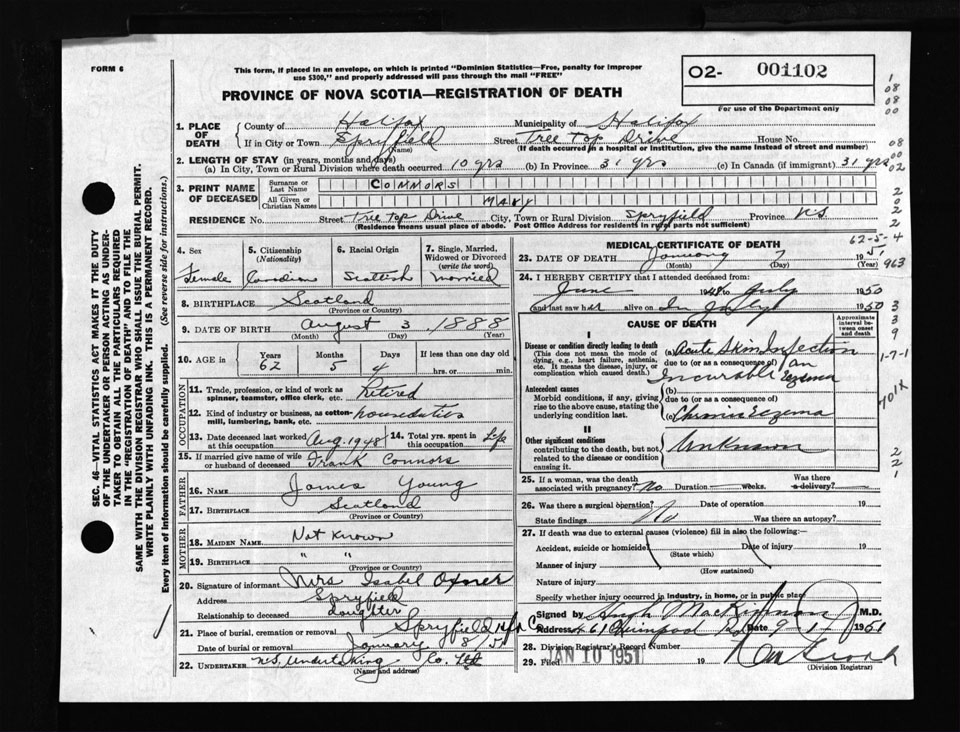 FORM 6
This form, if placed in an envelope, on which is printed "Dominion Statistics—Free, penalty for improper
use $300," and properly addressed will pass through the mail "FREE"
PROVINCE OF NOVA SCOTIA—REGISTRATION OF DEATH
O2- 001102
For use of the Department only
1. PLACE OF DEATH
County of Halifax Municipality of Halifax
If in City or Town Spryfield Street Tree Top Drive House No.
(Name) (If death occurred in a hospital or institution, give the name instead of street and number)
2. LENGTH OF STAY (in years, months and days)
(a) In City, Town or Rural Division where death occurred 10 yrs (b) In Province 31 yrs (c) In Canada (if immigrant) 31 yrs
3. PRINT NAME OF DECEASED
Surname or Last Name CONNORS
All Given or Christian Names MARY
RESIDENCE No. Street Tree Top Drive City, Town or Rural Division Spryfield Province N.S.
(Residence means usual place of abode. Post Office Address for residents in rural parts not sufficient)
4. Sex Female
5. Citizenship (Nationality) Canadian
6. Racial Origin Scottish
7. Single, Married, Widowed or Divorced (write the word) married
8. BIRTHPLACE Scotland
(Province or Country)
9. DATE OF BIRTH August 3, 1888
(Month) (Day) (Year)
10. AGE in Years 62 Months 5 Days 4 If less than one day old
hrs. or min.
OCCUPATION
11. Trade, profession, or kind of work as spinner, teamster, office clerk, etc. Retired
12. Kind of industry or business, as cotton-mill, lumbering, bank, etc. houseduties
13. Date deceased last worked at this occupation Aug. 1948
14. Total yrs. spent in this occupation Life
15. If married give name of wife or husband of deceased Frank Connors
FATHER
16. NAME James Young
17. BIRTHPLACE Scotland
(Province or Country)
MOTHER
18. MAIDEN NAME Not Known
19. BIRTHPLACE " "
(Province or Country)
20. Signature of informant Mrs Isabel
Address Spryfield
Relationship to deceased daughter
21. Place of burial, cremation or removal Spryfield
Date of burial or removal January 8/51
22. UNDERTAKER N.S. Undertaking Co. Ltd
(Name and address)
MEDICAL CERTIFICATE OF DEATH
62-5-4
23. DATE OF DEATH January 7 1951
(Month) (Day) (Year)
24. I HEREBY CERTIFY that I attended deceased from:
June 1948 to July 1950
and last saw her alive on In July 1950
CAUSE OF DEATH
Approximate interval between onset and death
I
Disease or condition directly leading to death
(This does not mean the mode of dying, e.g., heart failure, asthenia, etc. It means the disease, injury, or complication which caused death.)
(a) Acute Skin Infection
due to (or as a consequence of) an
Incurable Eczema
Antecedent causes
Morbid conditions, if any, giving rise to the above cause, stating the underlying condition last.
(b)
due to (or as a consequence of)
(c) Chronic Eczema
II
Other significant conditions contributing to the death, but not related to the disease or condition causing it.
Unknown
25. If a woman, was the death associated with pregnancy? No Duration weeks. Was there a delivery?
26. Was there a surgical operation? Date of operation 19
State findings No Was there an autopsy?
27. If death was due to external causes (violence) fill in also the following:—
Accident, suicide or homicide? Date of injury 19
(State which)
Manner of injury
(How sustained)
Nature of injury
Specify whether injury occurred in industry, in home, or in public place
Signed by Hugh MacKinnon M.D.
Address 461 Quinpool Rd Date 9-1 1951
28. Division Registrar's Record Number
29. Filed JAN 10 1951 19
(Division Registrar)
SEC. 46—VITAL STATISTICS ACT MAKES IT THE DUTY
OF THE UNDERTAKER OR PERSON ACTING AS UNDER-
TAKER TO OBTAIN ALL THE PARTICULARS REQUIRED
IN THE "REGISTRATION OF DEATH" AND TO FILE THE
SAME WITH THE DIVISION REGISTRAR WHO SHALL ISSUE THE BURIAL PERMIT.
WRITE PLAINLY WITH UNFADING INK. THIS IS A PERMANENT RECORD.
Every item of information should be carefully supplied. (See reverse side for instructions.)
1
08
08
00
08
00
02
2
0
2
2
963
3
3
9
1-7-1
701X
2
2
1